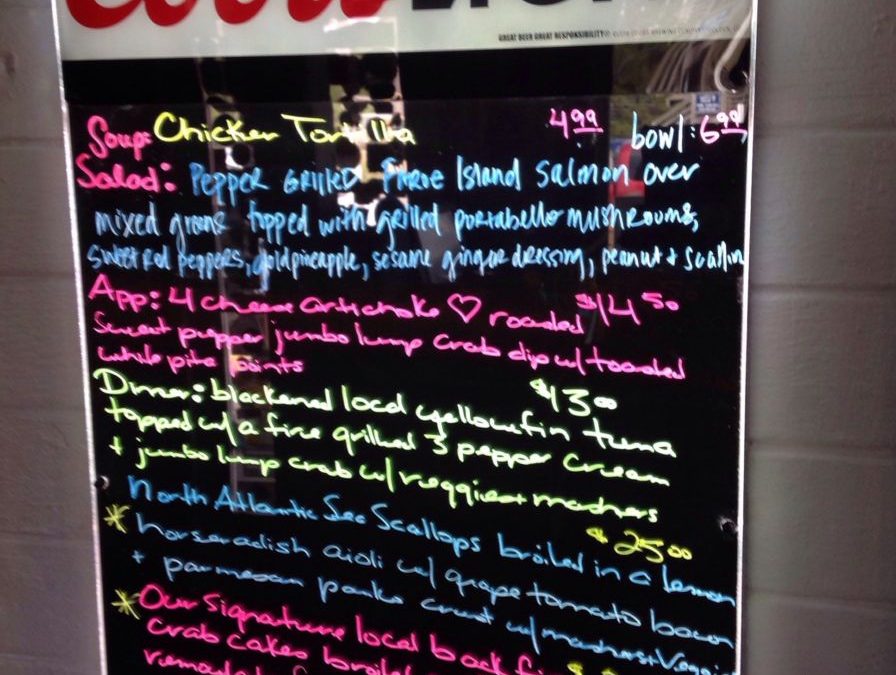 Coors LIGHT
GREAT BEER GREAT RESPONSIBILITY®
Soup: Chicken Tortilla 4.99 bowl: 6.99
Salad: Pepper Grilled Faroe Island Salmon over
mixed greens topped with grilled portabello mushrooms,
sweet red peppers, gold pineapple, sesame ginger dressing, peanut + scallion
App: 4 cheese artichoke ♡ roasted $14.50
Sweet pepper jumbo lump crab dip w/ toasted
white pita points
$13.00
Dinner: blackened local yellowfin tuna
topped w/ a fire grilled 3 pepper cream
+ jumbo lump crab w/ veggies + mashers
$25.00
North Atlantic Sea Scallops broiled in a lemon
* horseradish aioli w/ grape tomato bacon
+ parmesan panko crust w/ mashers + Veggies
* Our Signature local back fin
crab cakes broiled